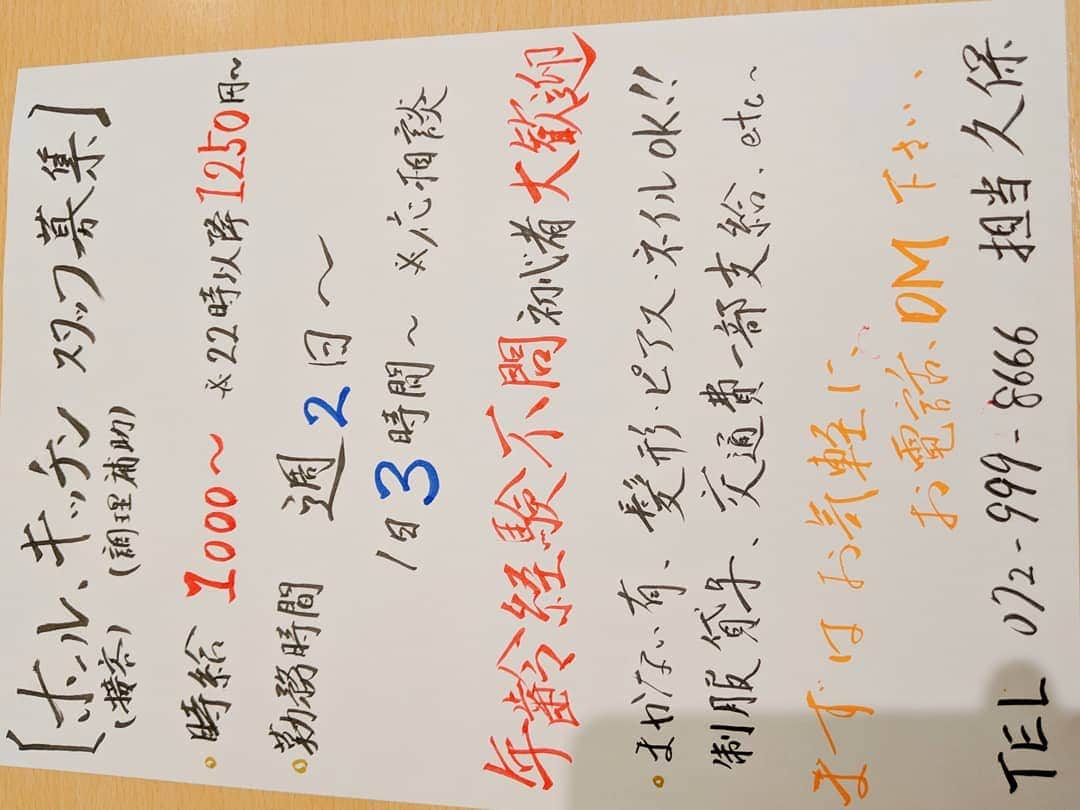 [ホール、キッチン スタッフ募集]
(接客) (調理補助)
。時給 1000〜 ※22時以降1250円〜
。勤務時間 週2日〜
1日3時間〜 ※応相談
年齢経験不問 初心者大歓迎
。まかない有、髪形・ピアス・ネイルOK!!
制服貸与、交通費一部支給、etc〜
まずはお気軽に、
お電話、DM下さい、
TEL 072-999-8666 担当 久保